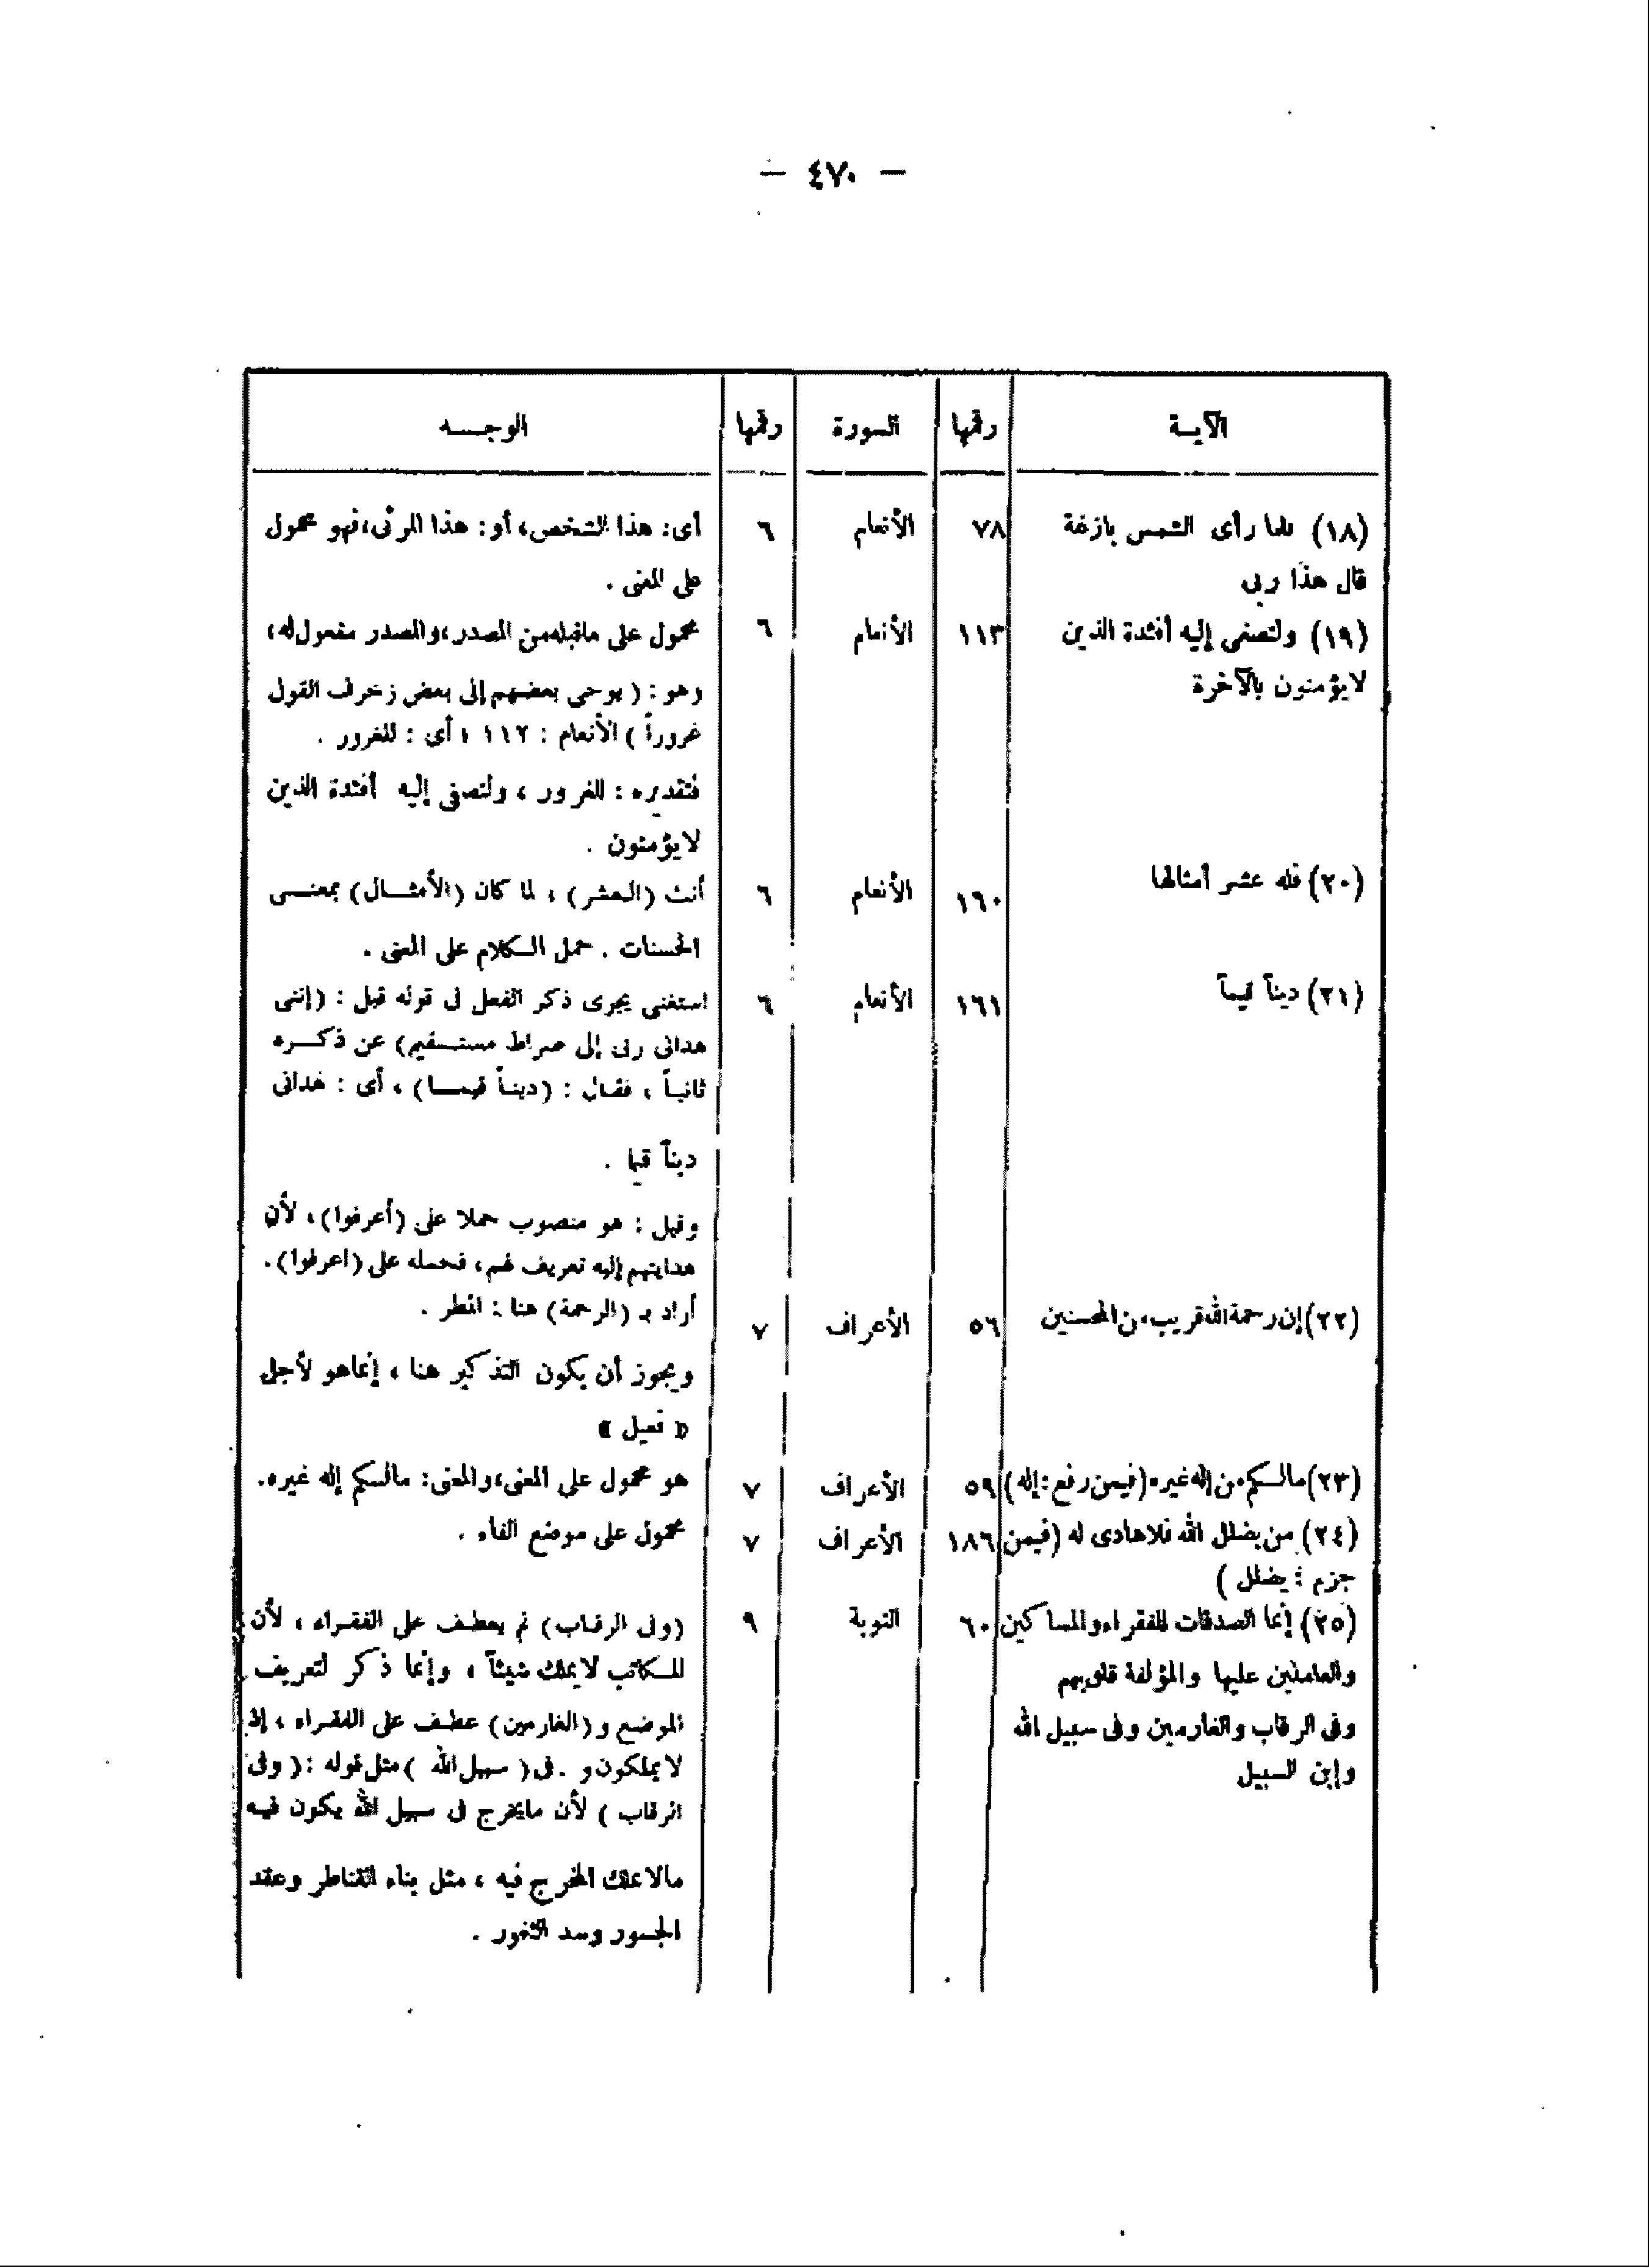 — ٤٧٠ —
الآيـة رقمها السورة رقمها الوجـــه
(١٨) فلما رأى الشمس بازغة ٧٨ الأنعام ٦ أى: هذا الشخص، أو: هذا المرئى، فهو محمول
قال هذا ربى على المعنى .
(١٩) ولتصغى إليه أفئدة الذين ١١٣ الأنعام ٦ محمول على ماقبله من المصدر، والمصدر مفعول له،
لايؤمنون بالآخرة وهو : ( يوحى بعضهم إلى بعض زخرف القول
غروراً ) الأنعام : ١١٢ ، أى : للغرور .
فتقديره : للغرور ، ولتصغى إليه أفئدة الذين
لايؤمنون .
(٢٠) فله عشر أمثالها ١٦٠ الأنعام ٦ أنث (العشر) ، لما كان (الأمثـال) بمعنـى
الحسنات . حمل الكلام على المعنى .
(٢١) ديناً قيماً ١٦١ الأنعام ٦ استغنى بجرى ذكر الفعل فى قوله قبل : (إننى
هدانى ربى إلى صراط مستـقيم) عن ذكـره
ثانياً ، فقال : (ديناً قيمـا) ، أى : هدانى
ديناً قيما .
وقيل : هو منصوب حملا على (أعرفوا)، لأن
هدايتهم إليه تعريف لهم، فحمله على (اعرفوا).
(٢٢) إن رحمة الله قريب من المحسنين ٥٦ الأعراف ٧ أراد بـ (الرحمة) هنا : المطر .
ويجوز أن يكون التذكير هنا ، إنماهو لأجل
« فعيل »
(٢٣) مالكم من إله غيره (فيمن رفع : إله) ٥٩ الأعراف ٧ هو محمول على المعنى، والمعنى: مالكم إله غيره.
(٢٤) من يضلل الله فلاهادى له (فيمن ١٨٦ الأعراف ٧ محمول على موضع الفاء .
جزم : يضلل )
(٢٥) إنما الصدقات للفقراء والمساكين ٦٠ التوبة ٩ (وفى الرقاب) لم يعطف على الفقراء ، لأن
والعاملين عليها والمؤلفة قلوبهم المكاتب لايملك شيئاً ، وإنما ذكر لتعريف
وفى الرقاب والغارمين وفى سبيل الله الموضع و(الغارمين) عطف على الفقراء ، إذ
وإبن السبيل لايملكون و . فى ( سبيل الله ) مثل قوله : ( وفى
الرقاب ) لأن مايخرج فى سبيل الله يكون فيه
مالايملك المخرج فيه ، مثل بناء القناطر وعقد
الجسور وسد الثغور .